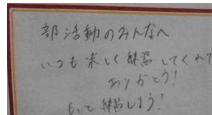 部活動のみんなへ
いつも楽しく練習してくれて
ありがとう！
もっと練習しよう！